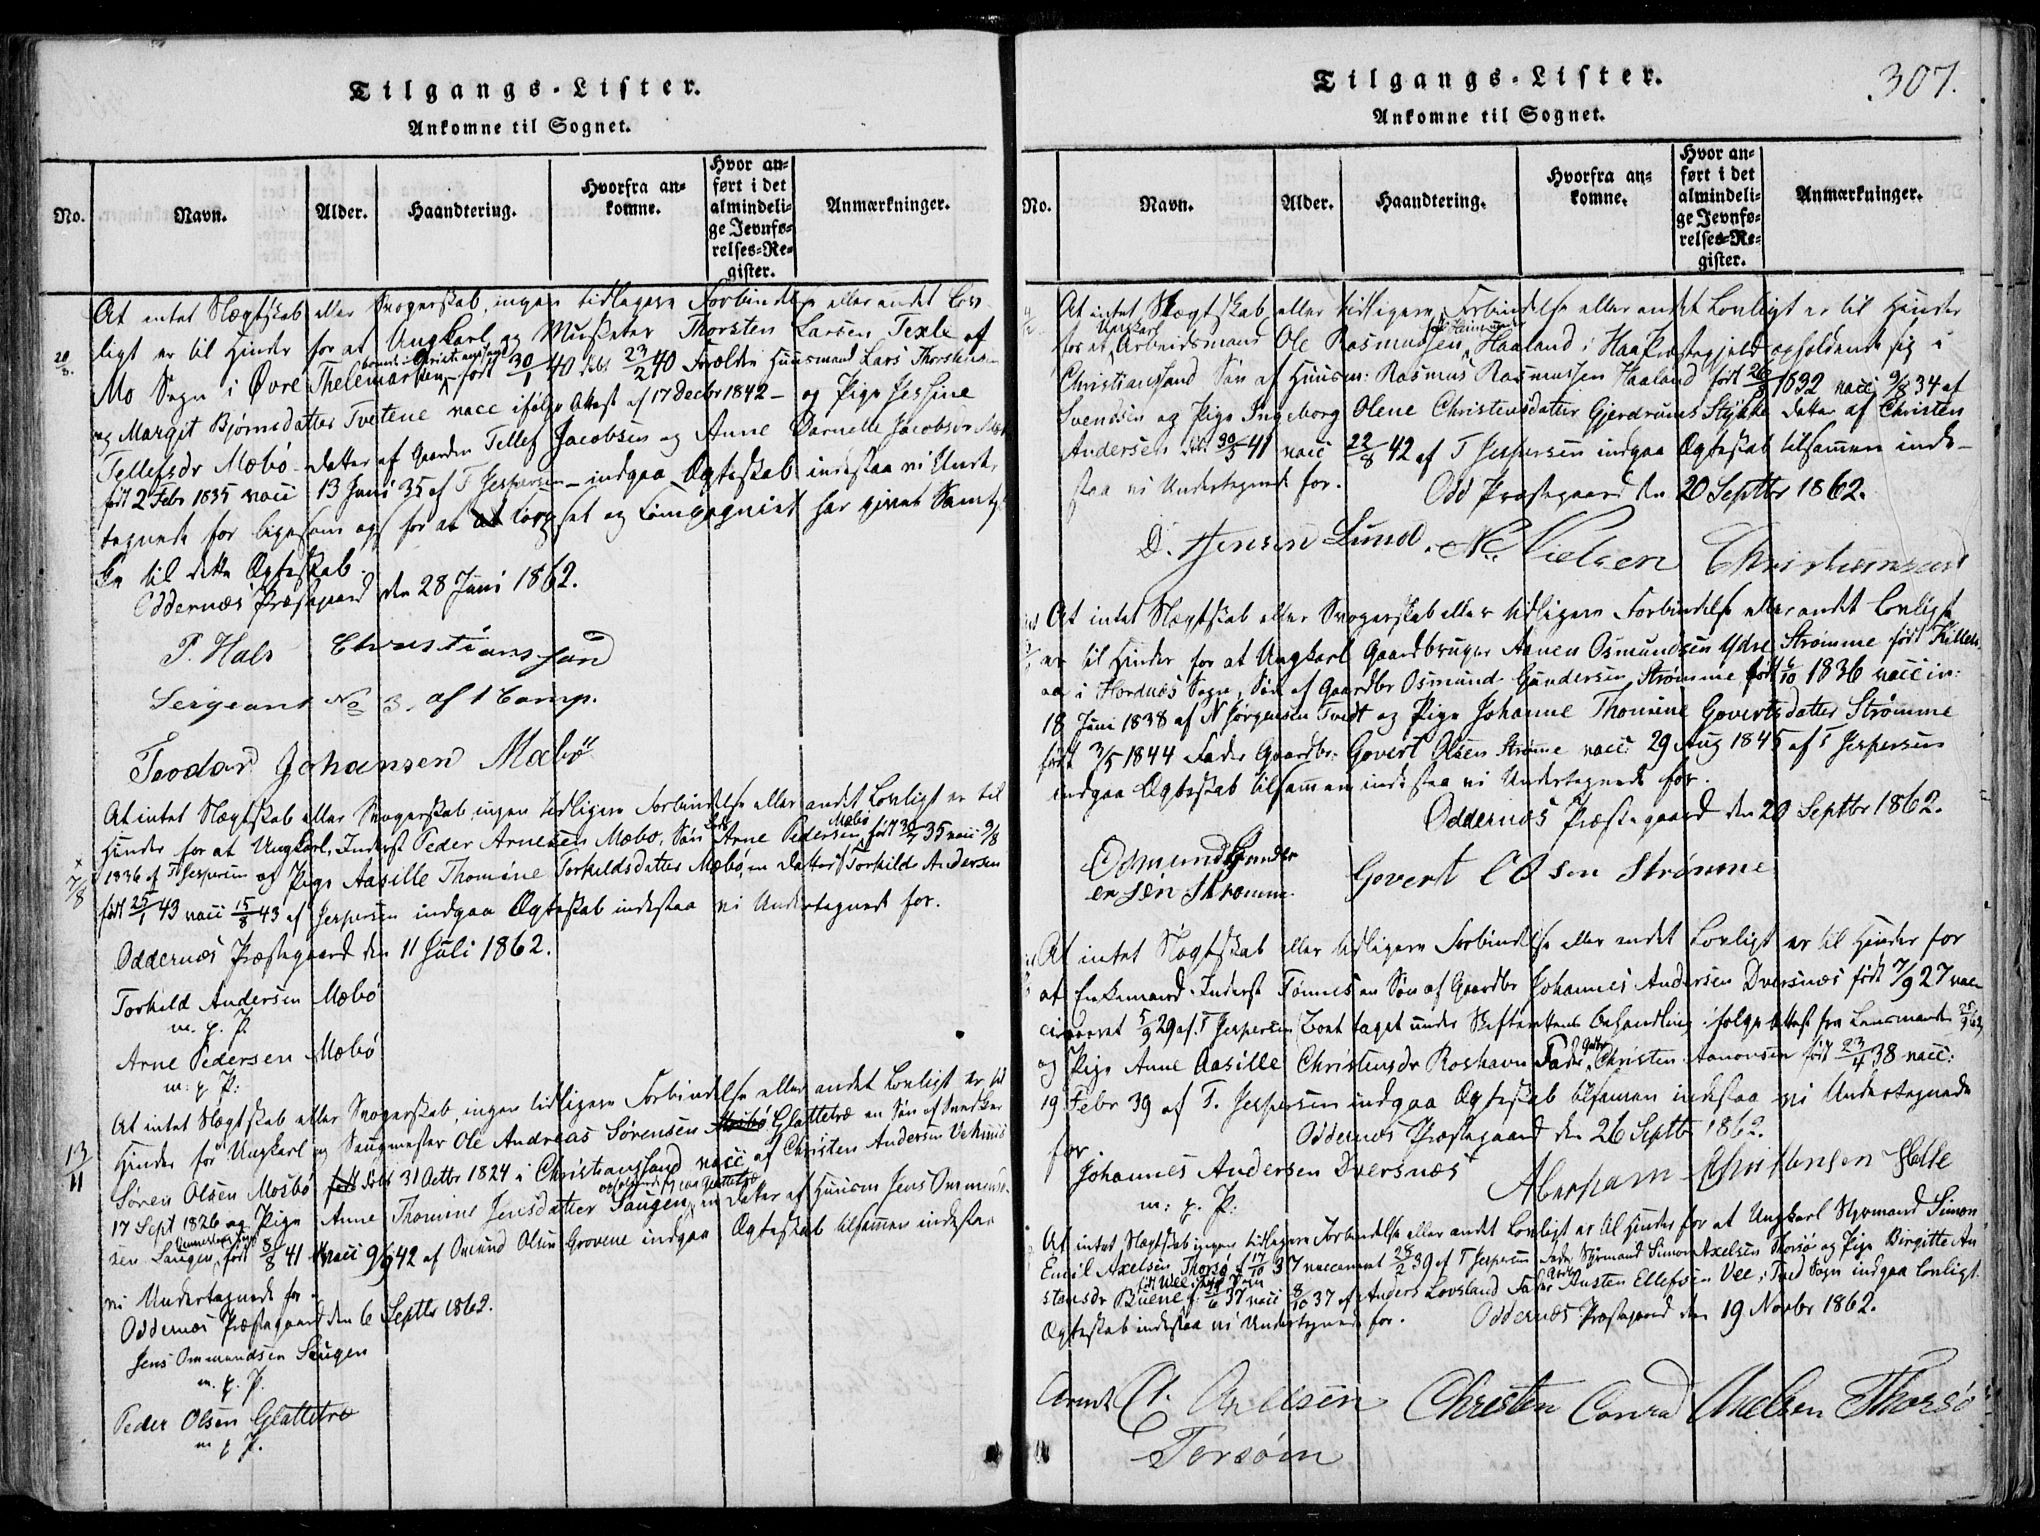 Tilgangs-Lister.
Ankomne til Sognet.
No.
Navn.
Alder.
Haandtering.
Hvorfra an-
komne.
Hvor an-
ført i det
almindeli-
ge Jevnfø-
relses-Re-
gister.
Anmærkninger.
At intet Slægtskab eller Svogerskab, ingen tidligere Forbindelse eller andet Lov-
ligt er til Hinder for at Ungkarl og Musketer Thorsten Larsen Texle af
Mo Sogn i Øvre Thelemarken, født 30/1 40 døbt 23/2 40 Forældre Huusmand Lars Thorstensen
og Margit Bjørnsdatter Tvetene vacc ifølge Attest af 17 Decbr 1842 – og Pige Jessine
Tellefsdr Mæbø – Datter af Gaardm Tellef Jacobsen og Anne Jacobsdr
født 2 Febr 1835 vacc 13 Juni 35 af T Jespersen – indgaa Ægteskab indestaa vi Under-
tegnede for ligesom og for at og Compagniet har givet Samtyk-
ke til dette Ægteskab.
Oddernæs Præstegaard den 28 Juni 1862.
P. Hals Christianssand
Sergeant No 3. af 1 Comp.
Teodor Johansen Mæbø
At intet Slægtskab eller Svogerskab, ingen tidligere Forbindelse eller andet Lovligt er til
Hinder for at Ungkarl, Inderst Peder Arnesen Mæbø, Søn af Arne Pedersen Mæbø, født 35 vacc 9/8
7/8
1836 af T Jespersen og Pige Aasille Thomine Torkildsdatter Mæbø, en Datter af Torkild Andersen
født 25/1 43 vacc 15/8 43 af Jespersen indgaa Ægteskab indestaa vi Undertegnede for.
Oddernæs Præstegaard den 11 Juli 1862.
Torkild Andersen Mæbø
m. p. P.
Arne Pedersen Mæbø
m. p. P.
At intet Slægtskab eller Svogerskab, ingen tidligere Forbindelse eller andet Lovligt er til
13/11
Hinder for Ungkarl og Saugmester Ole Andreas Sørensen Glattetræ en Søn af Snedker
Søren Olsen Mosbø født 31 Octbr 1824 i Christianssand vacc af Christen Andersen
17 Sept 1826 og Pige Anne Thomine Jensdatter Saugen, en Datter af Huusm Jens Ommunds-
sen Saugen, født 8/8 41 vacc 9/9 42 af Omund Olsen Grovene indgaa Ægteskab tilsammen indestaa
vi Undertegnede for.
Oddernæs Præstegaard den 6 Septbr 1862.
Jens Ommundsen Saugen
m. p. P.
Peder Olsen Glattetræ
m p P.
Tilgangs-Lister.
307.
Ankomne til Sognet.
No.
Navn.
Alder.
Haandtering.
Hvorfra an-
komne.
Hvor an-
ført i det
almindeli-
ge Jevnfø-
relses-Re-
gister.
Anmærkninger.
At intet Slægtskab eller tidligere Forbindelse eller andet Lovligt er til Hinder
for at Ungkarl Arbeidsmand Ole Rasmussen Haaland i Haa Præstegjeld opholdende sig i
Christianssand Søn af Huusm: Rasmus Rasmussen Haaland født 1832 vacc 9/8 34 af
Svendsen og Pige Ingeborg Olene Christensdatter Gjerdrums Stykke Datter af Christen
Andersen født 30/5 41 vacc 22/8 42 af T Jespersen indgaa Ægteskab tilsammen inde-
staa vi Undertegnede for.
Odd Præstegaard den 20 Septbr 1862.
D. Hensen Lund. N. Nielsen Christianssand
At intet Slægtskab eller Svogerskab eller tidligere Forbindelse eller andet Lovligt
er til Hinder for at Ungkarl Gaardbruger Aanen Osmundsen Ydre Strømme født
i Sogn, Søn af Gaardbr Osmund Gundersen Strømme født 6/10 1836 vaccin:
18 Juni 1838 af N Jørgensen Tvedt og Pige Johanne Thomine Govertsdatter Strømme
født 3/5 1844 Fader Gaardbr: Govert Olsen Strømme vacc: 29 Aug 1845 af T Jespersen
indgaa Ægteskab tilsammen indestaa vi Undertegnede for.
Oddernæs Præstegaard den 20 Septbr 1862.
Osmund Gunder
ensen Strømme.
Govert Olsen Strømme
At intet Slægtskab eller tidligere Forbindelse eller andet Lovligt er til Hinder for
at Enkemand Inderst Tønnes en Søn af Gaardbr Johannes Andersen Dversnæs født 7/9 27 vac-
cineret 5/9 29 af T Jespersen (Boet taget under Skifterettens Behandling ifølge Attest fra Lensmanden
og Pige Anne Aasille Christensdr Roshavn Fader Christen Aanonsen født 23/4 38 vacc:
19 Febr 39 af T. Jespersen indgaa Ægteskab tilsammen indestaa vi Undertegnede
for
Oddernæs Præstegaard den 26 Septbr 1862.
Johannes Andersen Dversnæs
m. p. P.
Abraham Christensen
At intet Slægtskab ingen tidligere Forbindelse eller andet Lovligt er til Hinder for at Ungkarl Styrmand Simon
Emil Axelsen Thorsø f 17/10 37 vaccineret 28/2 39 af T Jespersen Fader Styrmand Simon Axelsen Thorsø og Pige Birgitte Au-
stensdr Buene f. 37 vacc 8/10 37 af Anders Lovsland Fader Austen Ellefsen Vee i Tved Sogn indgaa Lovligt
Ægteskab indestaa vi Undertegnede for.
Oddernæs Præstegaard den 19 Novbr 1862.
Christen Conrad Axelsen Thorsø